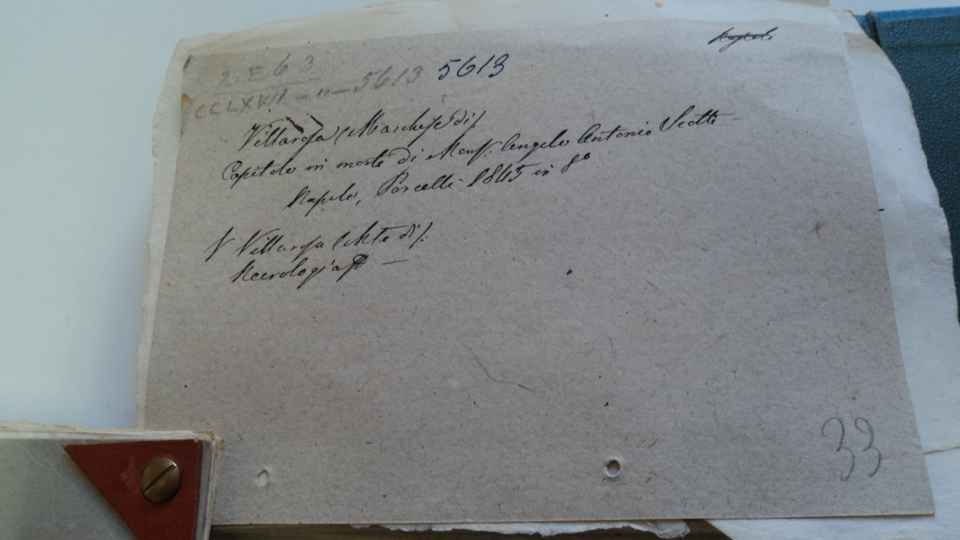 2. E 63
CCLXVII - " - 5613 5613
Napoli
Villarosa (Marchese di)
Capitolo in morte di Mons. Angelo Antonio Scotti
Napoli, Porcelli 1845 in 8°
V Villarosa (Mse di).
Necrologia —
33